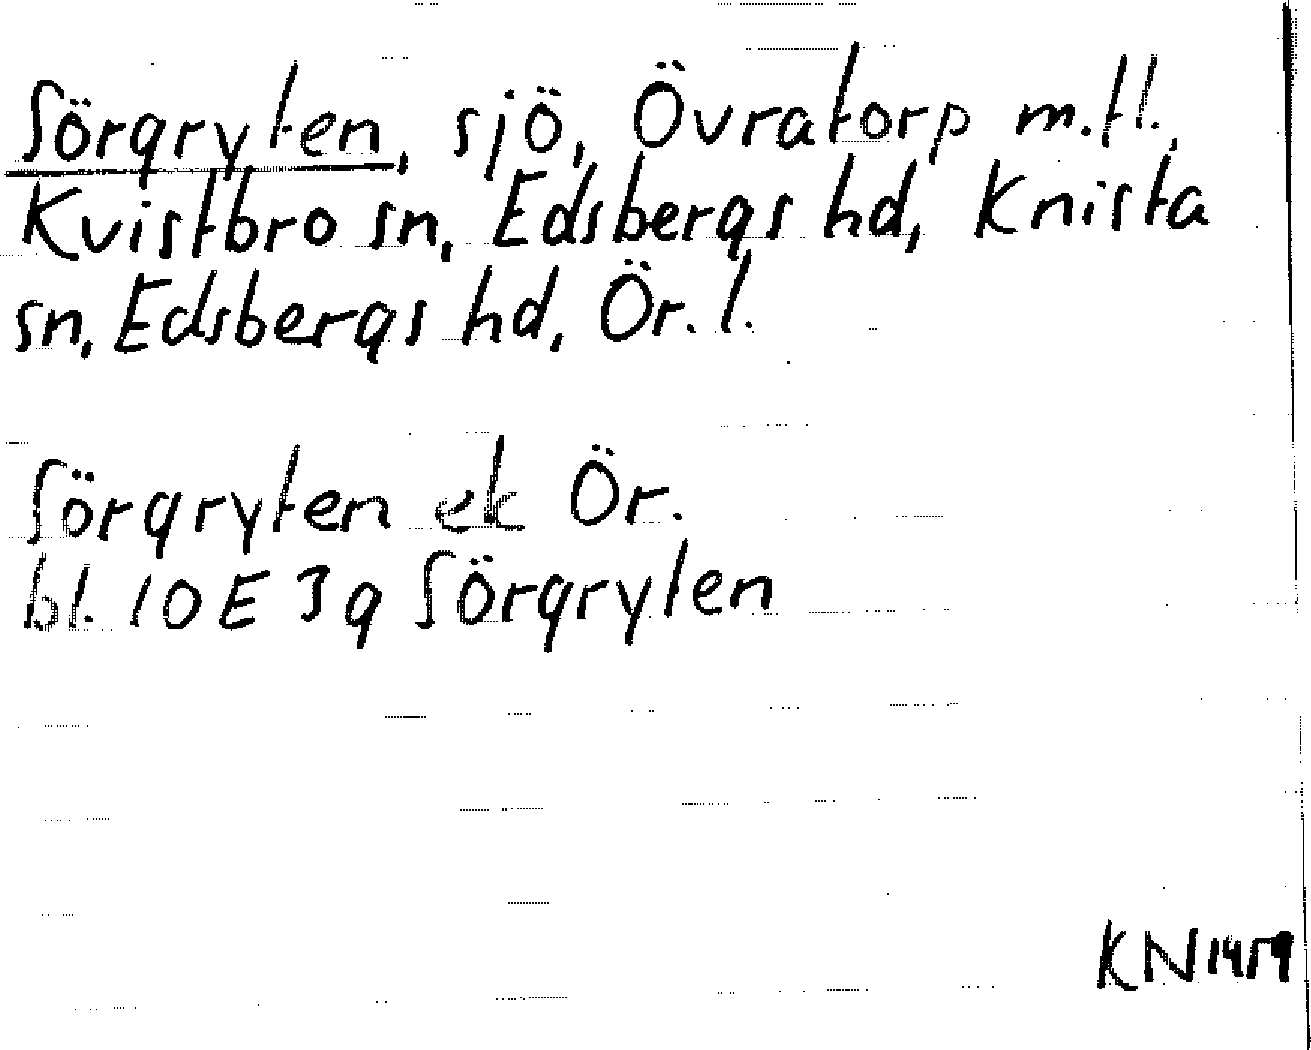 Sörgryten, sjö, Övratorp m.fl.,
Kvistbro sn, Edsbergs hd, Knista
sn, Edsbergs hd, Ör. l.
Sörgryten ek Ör.
bl. 10E 3g Sörgryten
KN 1459